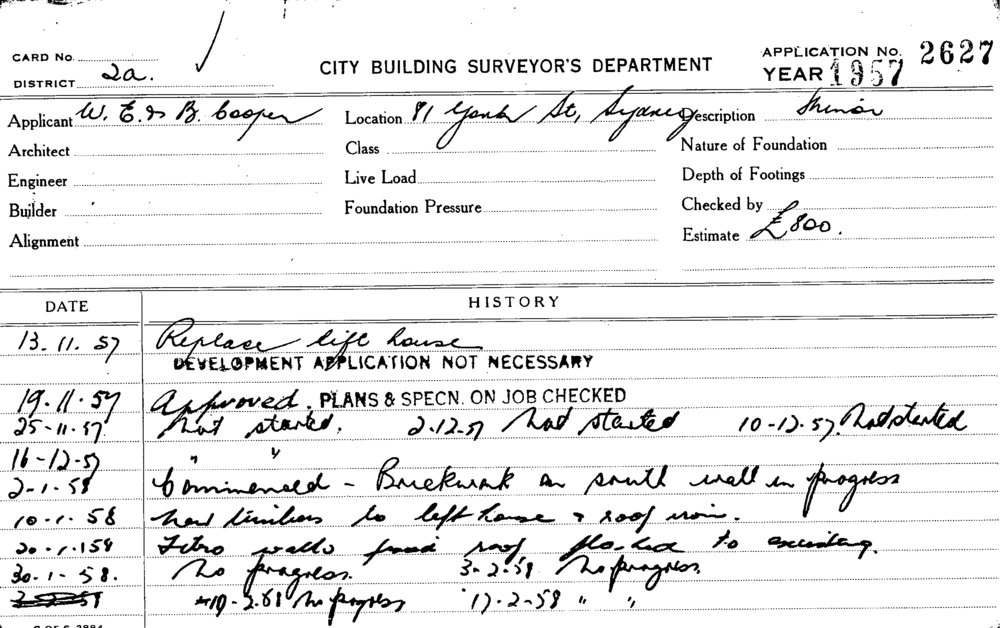 CARD No.
DISTRICT 2a.
CITY BUILDING SURVEYOR'S DEPARTMENT
APPLICATION No. 2627
YEAR 1957
Applicant W. E. & B. Cooper Location 81 York St, Sydney Description Minor
Architect Class Nature of Foundation
Engineer Live Load Depth of Footings
Builder Foundation Pressure Checked by
Alignment Estimate £800.
DATE HISTORY
13.11.57 Replace lift house
DEVELOPMENT APPLICATION NOT NECESSARY
19.11.57 Approved. PLANS & SPECN. ON JOB CHECKED
25-11.57 Not started. 2.12.57 Not started 10-12.57. Not started
16-12-57 " "
2-1-58 Commenced - Brickwork on south wall in progress
10-1.58 New timbers to lift house & roof iron.
20-1.158 Fibro walls roof flashed to existing.
30-1-58. No progress. 3-2.58 No progress.
10-2.58 No progress 17-2-58 " "